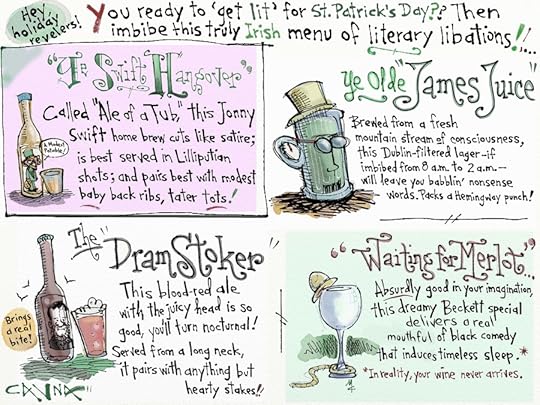 Hey, holiday revelers!
You ready to 'get lit' for St. Patrick's Day?? Then
imbibe this truly Irish menu of literary libations!!...
"Ye Swift Hangover"
Called "Ale of a Tub," this Jonny
Swift home brew cuts like satire;
is best served in Lilliputian
shots; and pairs best with modest
baby back ribs, tater tots.!
A Modest Potable!
Ye Olde "James Juice"
Brewed from a fresh
mountain stream of consciousness,
this Dublin-filtered lager—if
imbibed from 8 a.m. to 2 a.m.—
will leave you babblin' nonsense
words. Packs a Hemingway punch!
The "Dram Stoker"
This blood-red ale
with the juicy head is so
good, you'll turn nocturnal!
Served from a long neck,
it pairs with anything but
hearty stakes!!
Brings
a real
bite!
"Waiting for Merlot...
Absurdly good in your imagination,
this dreamy Beckett special
delivers a real
mouthful of black comedy
that induces timeless sleep.*
*In reality, your wine never arrives.